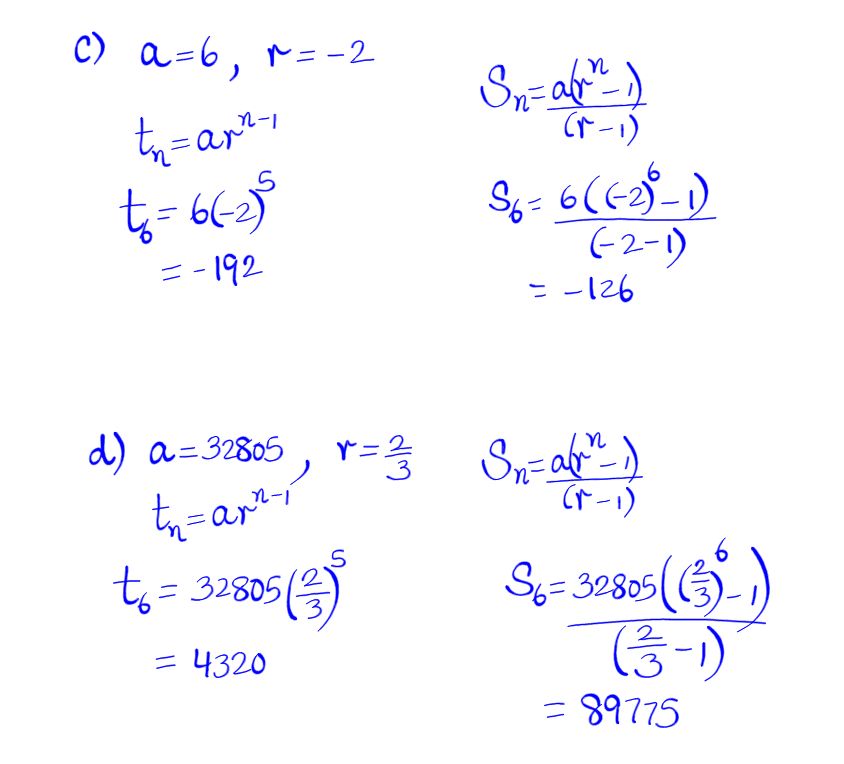 c) a=6, r=-2
tₙ=arⁿ⁻¹
t₆=6(-2)⁵
=-192
Sₙ=a(rⁿ-1)
(r-1)
S₆=6((-2)⁶-1)
(-2-1)
=-126
d) a=32805, r=2/3
tₙ=arⁿ⁻¹
t₆=32805(2/3)⁵
=4320
Sₙ=a(rⁿ-1)
(r-1)
S₆=32805((2/3)⁶-1)
(2/3-1)
=89775